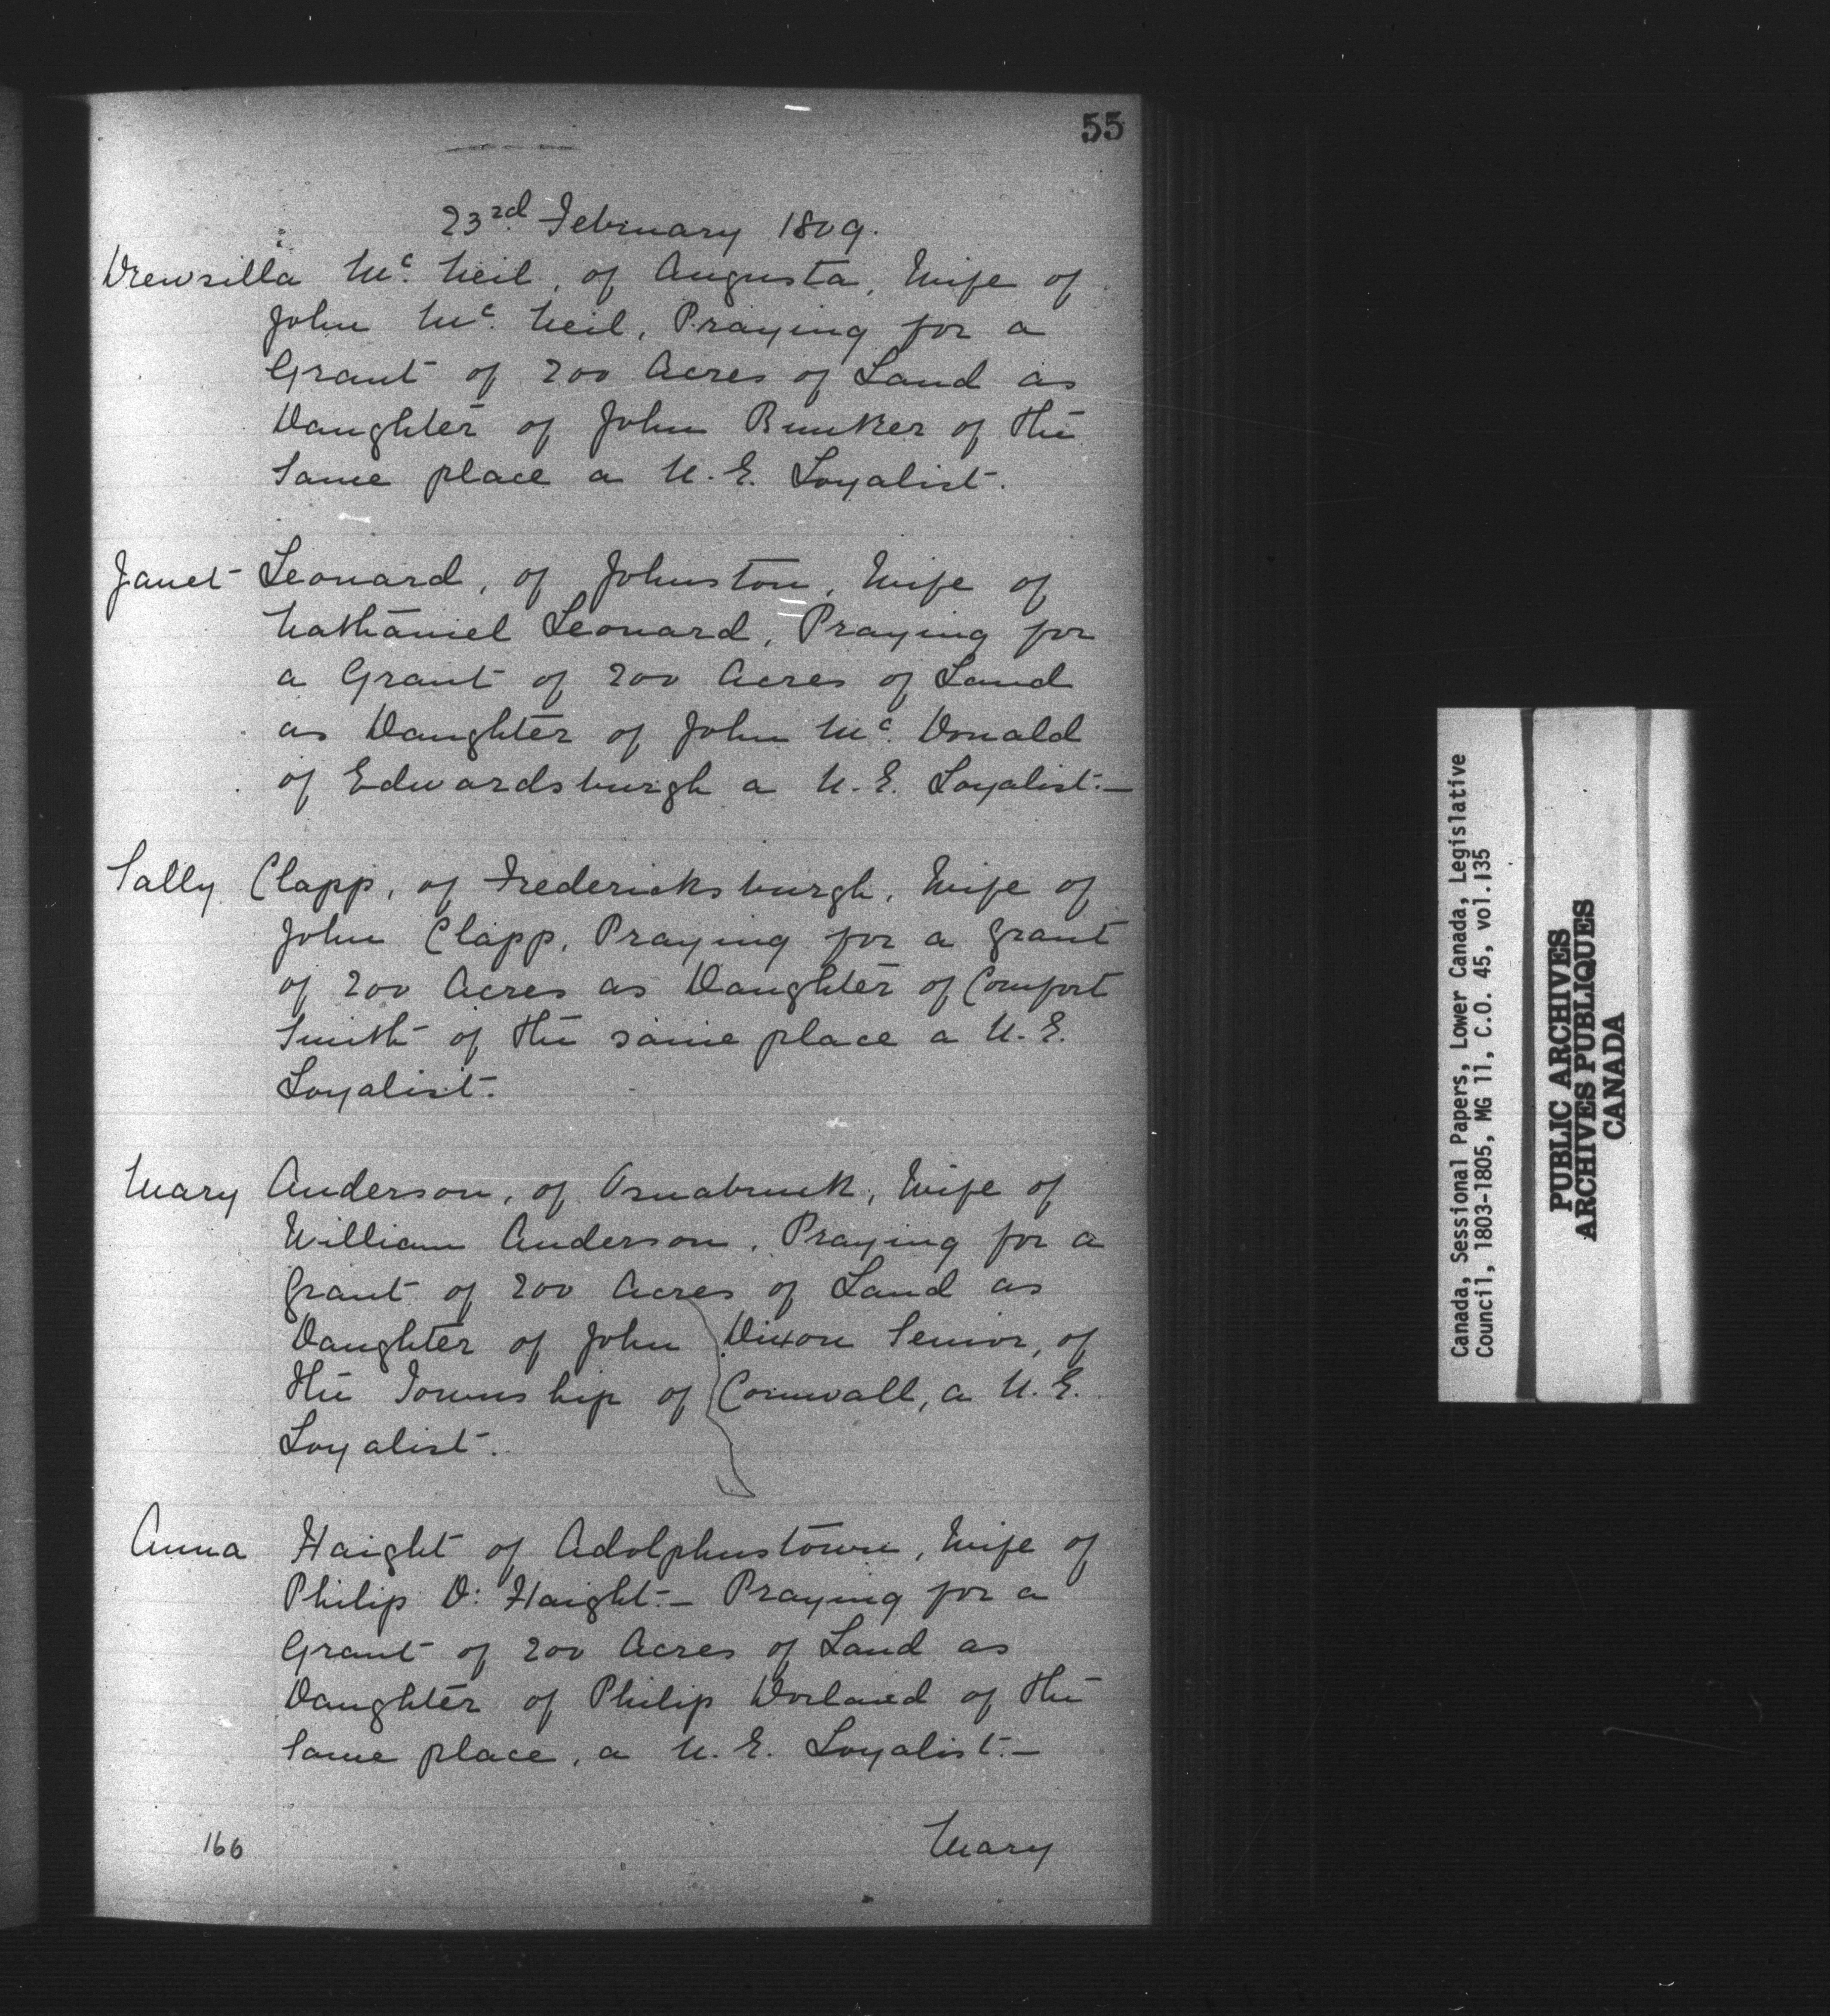 55
23rd February 1809.
Drewsilla Mc. Neil, of Augusta, Wife of
John Mc. Neil, Praying for a
Grant of 200 Acres of Land as
Daughter of John Bunker of the
Same place a U.E. Loyalist.
Janet Leonard, of Johnston, Wife of
Nathaniel Leonard, Praying for
a Grant of 200 Acres of Land
as Daughter of John Mc. Donald
of Edwardsburgh a U.E. Loyalist.—
Sally Clapp, of Fredericksburgh, Wife of
John Clapp, Praying for a grant
of 200 Acres as Daughter of Comfort
Smith of the same place a U.E.
Loyalist.
Mary Anderson, of Osnabruck, Wife of
William Anderson, Praying for a
grant of 200 Acres of Land as
Daughter of John Dixon Senior, of
the Township of Cornwall, a U.E.
Loyalist.
Anna Haight of Adolphustown, Wife of
Philip D: Haight.— Praying for a
Grant of 200 Acres of Land as
Daughter of Philip Dorland of the
Same place, a U.E. Loyalist.—
166
Mary
Canada, Sessional Papers, Lower Canada, Legislative
Council, 1803-1805, MG 11, C.O. 45, vol.135
PUBLIC ARCHIVES
ARCHIVES PUBLIQUES
CANADA